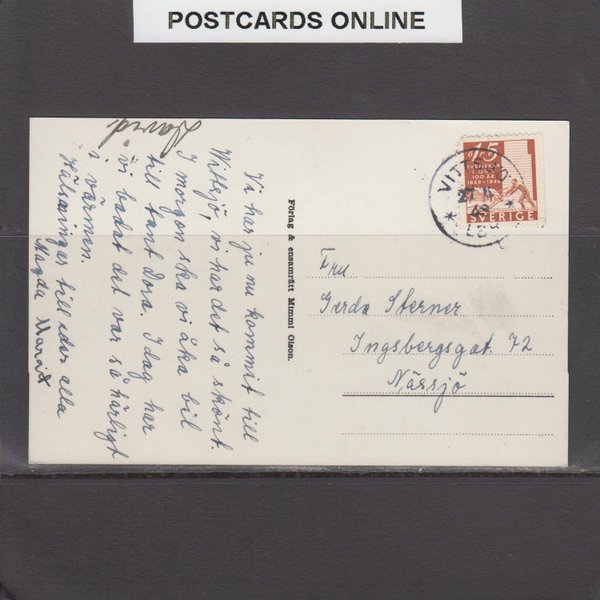 POSTCARDS ONLINE
Vi har ju nu kommit till
Wittsjö, vi har det så skönt.
I morgon ska vi åka bil
till tant Dora. I dag har
vi badat det var så härligt
i värmen.
Hälsninger till eder alla
Magda Marit
David
Förlag & ensamrätt Mimmi Olson.
15
SVENSKAR
I USA
100 ÅR
1848-1948
SVERIGE
Fru
Gerda Sterner
Ingsbergsgat. 72
Nässjö